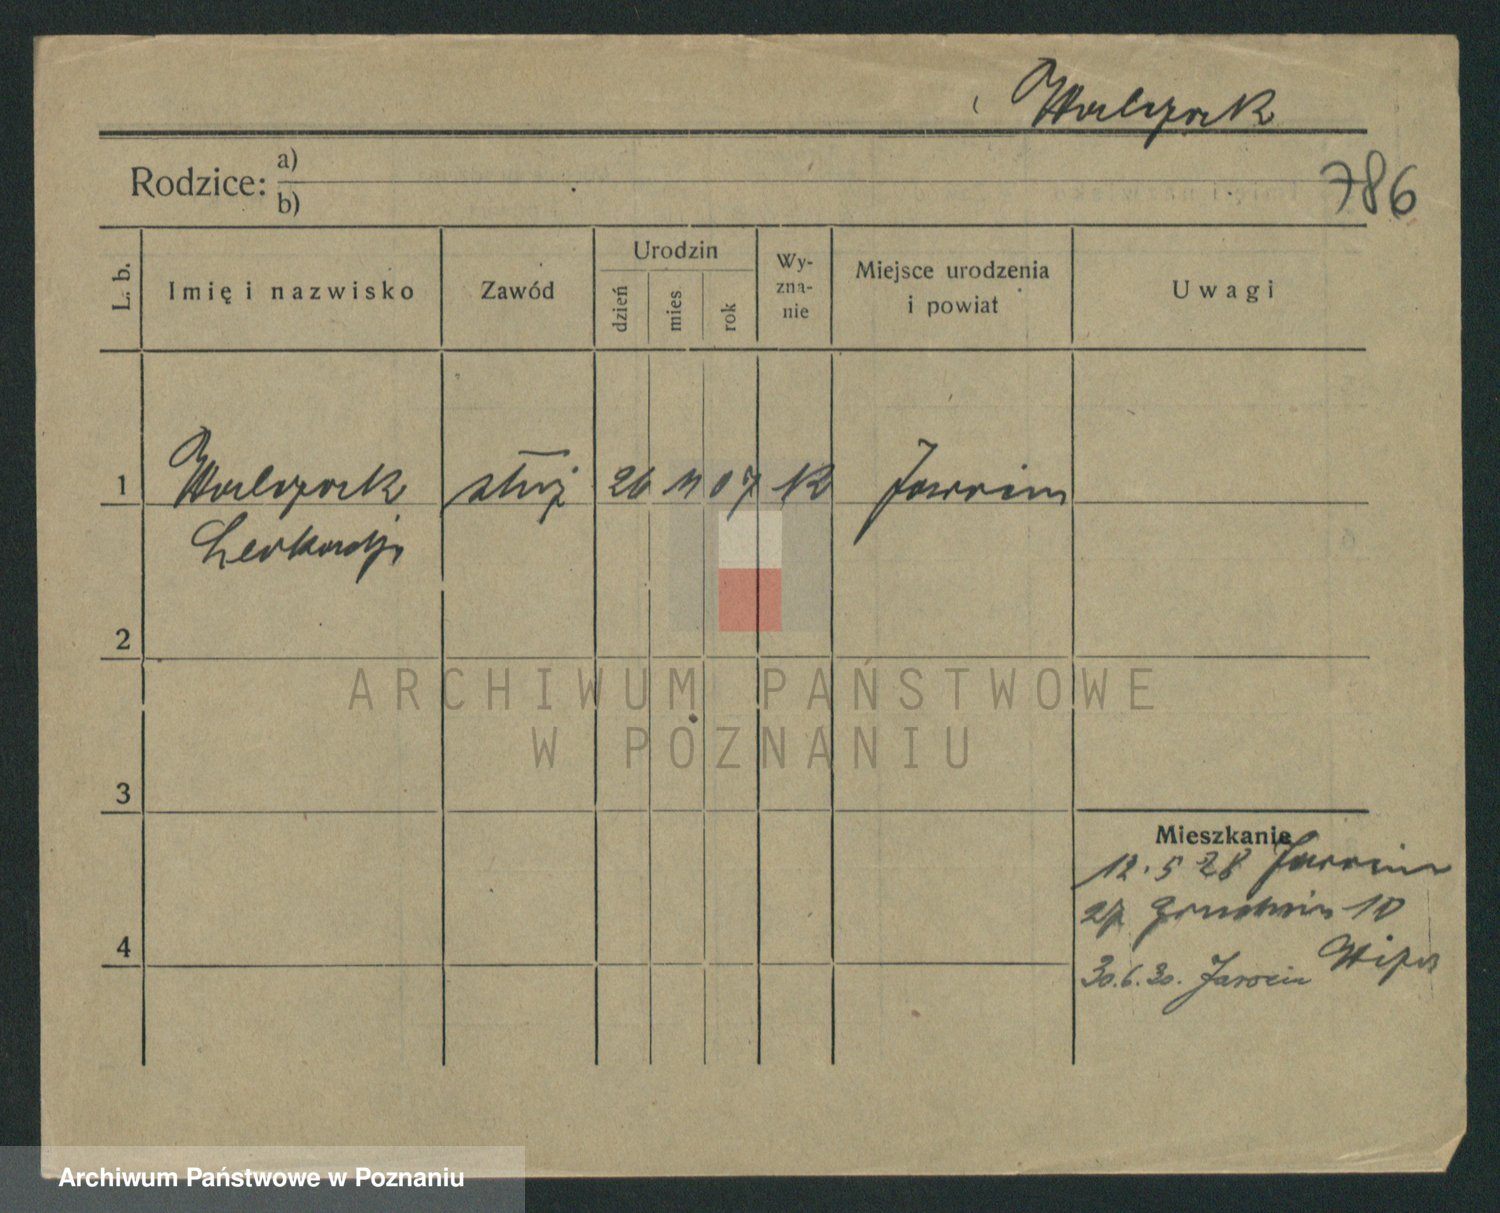 Walczak
786
Rodzice: a)
b)
L. b.
Imię i nazwisko
Zawód
Urodzin
dzień
mies
rok
Wy-
zna-
nie
Miejsce urodzenia
i powiat
Uwagi
1 Walczak służ 26 11 07 K Jarocin
Leokadja
2
ARCHIWUM PAŃSTWOWE
W POZNANIU
3
Mieszkanie
12. 5 28 Jarocin
10
4
30.6.30. Jarocin
Archiwum Państwowe w Poznaniu